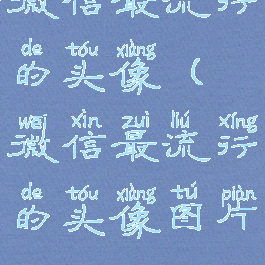 微信最流行
de tóu xiàng
的头像（
wēi xìn zuì liú xíng
微信最流行
de tóu xiàng tú piàn
的头像图片